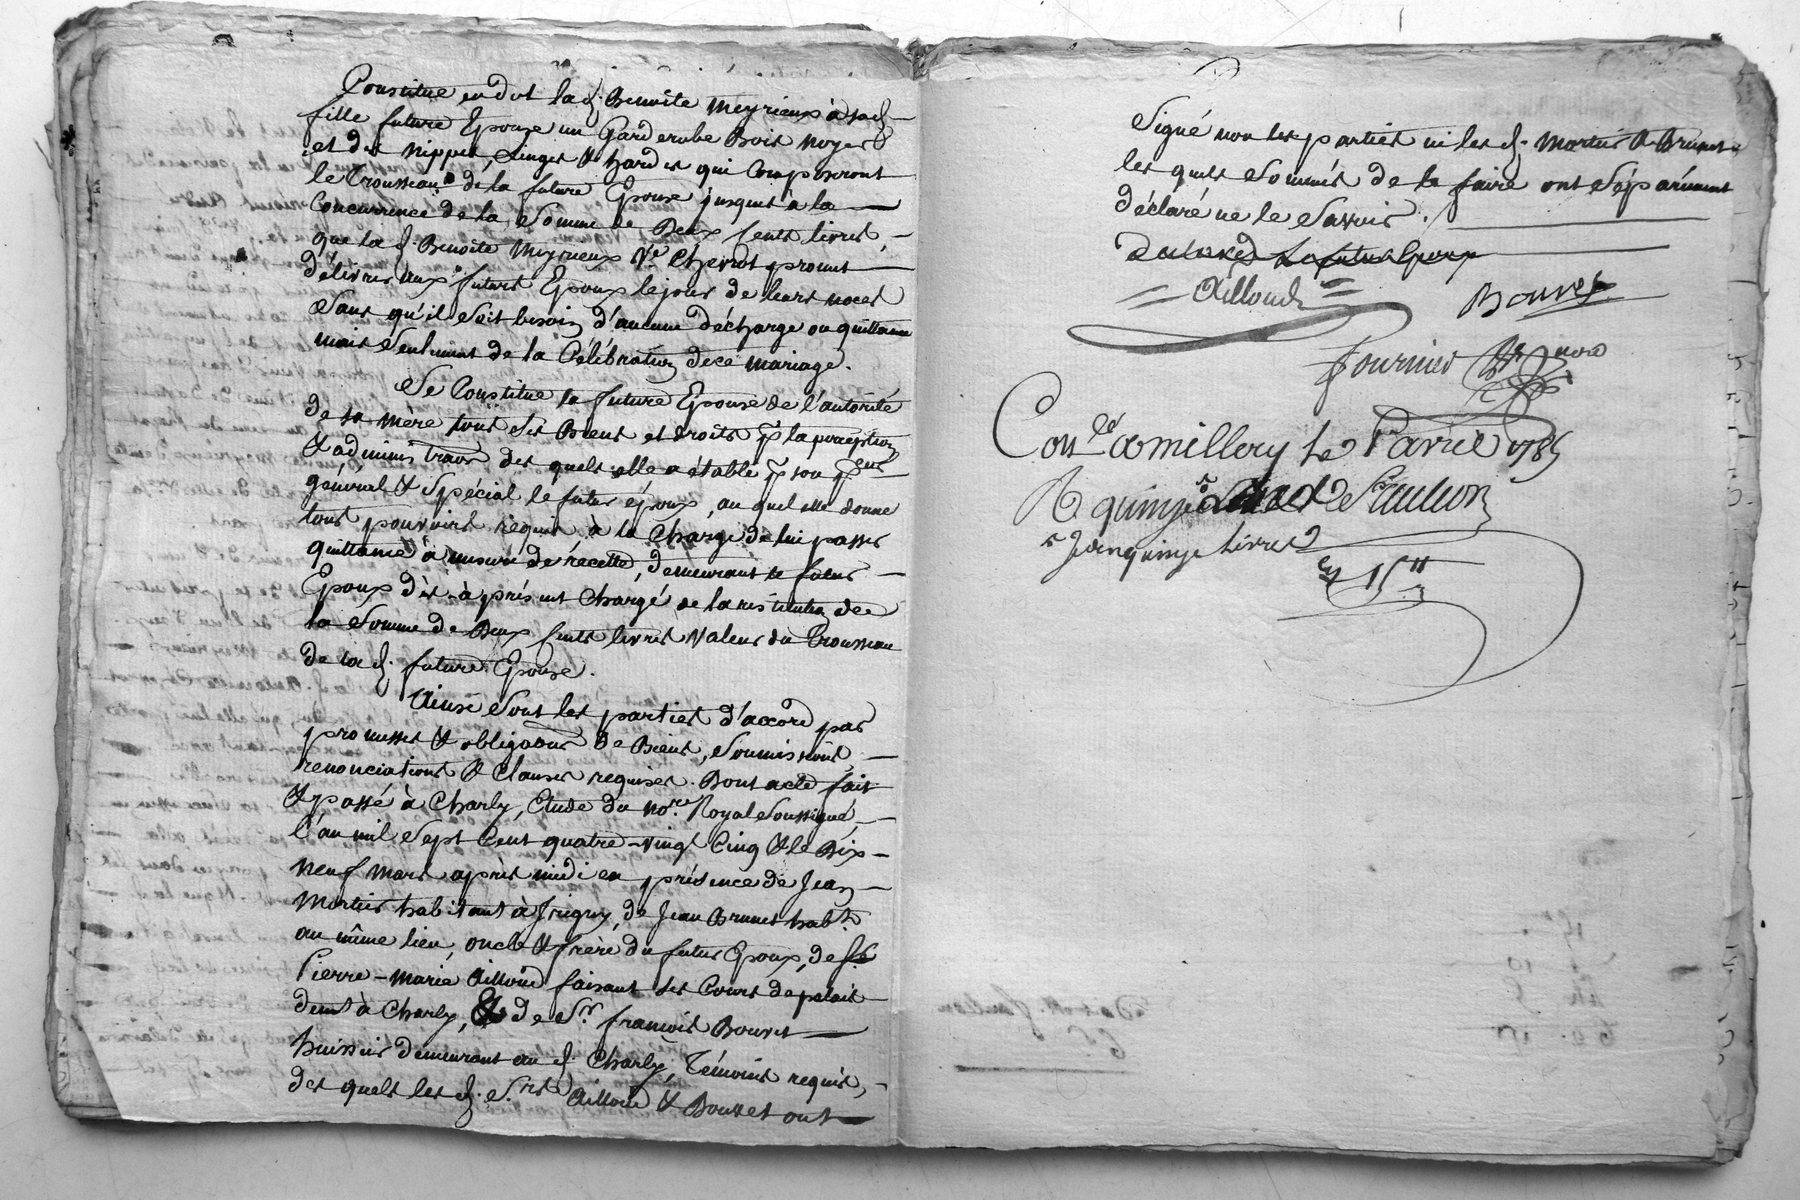 Constitue en dot lad. Benoite Meyrieux à sad.
fille future Epouse un Garderobe Bois noyer
et des nippes, Linges & hardes qui Composeront
le Trousseau de la future Epouse jusques à la
Concurrence de la Somme de Deux Cents livres,
que lad. Benoite Meyrieux Ve. Chevrot promet
délivrer aux futurs Epoux le jour de leurs noces
Sans qu'il Soit besoin d'aucune décharge ou quittance
mais Seulement de la Célébration de ce mariage.
Se Constitue la future Epouse de l'autorité
de sa mère tous Ses Biens et droits pr. la perception
& administraon des quels elle a établi pr. son pr.eur
général & Spécial le futur époux, au quel elle donne
tous pouvoirs requis à la Charge de lui passer
quittance à mesure de récette, demeurant le futur
Epoux dès-à-présent Chargé de la restitution de
la Somme de Deux Cents livres Valeur du Trousseau
de lad. future Epouse.
Ainsi Sont les parties d'accord par
promesses & obligaons de Biens, Soumissions,
renonciations & Clauses requises. Dont acte fait
& passé à Charly, Etude du no.re Royal Soussigné,
l'an mil Sept Cent quatre-vingt Cinq & le Dix-
neuf mars après midi en présence de Jean
Mortier habitant à Irigny, de Jean Brunet habt.
au même lieu, oncle & frère du futur Epoux, de
Pierre-Marie Ailloud faisant Ses Cours de palais
demt. à Charly, & de Sr. françois Bouvet
huissier demeurant aud. Charly, Témoins requis,
des quels les d. S.rs Ailloud & Bouvet ont
Signé non les parties ni les d. Mortier & Brunet
les quels Sommés de le faire ont Séparément
déclaré ne le Savoir.
la future Epouse
Ailloud
Bouvet
Fournier nore
Con.lé a millery le 1er avril 1785
R quinze
quinze Livres
15 ₶